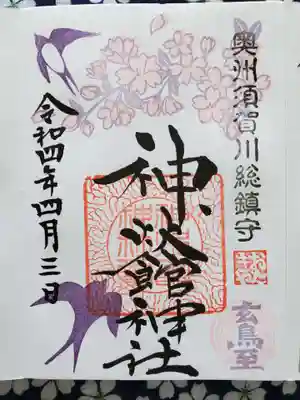 奥州須賀川総鎮守
玄鳥至
神炊館神社
令和四年四月三日